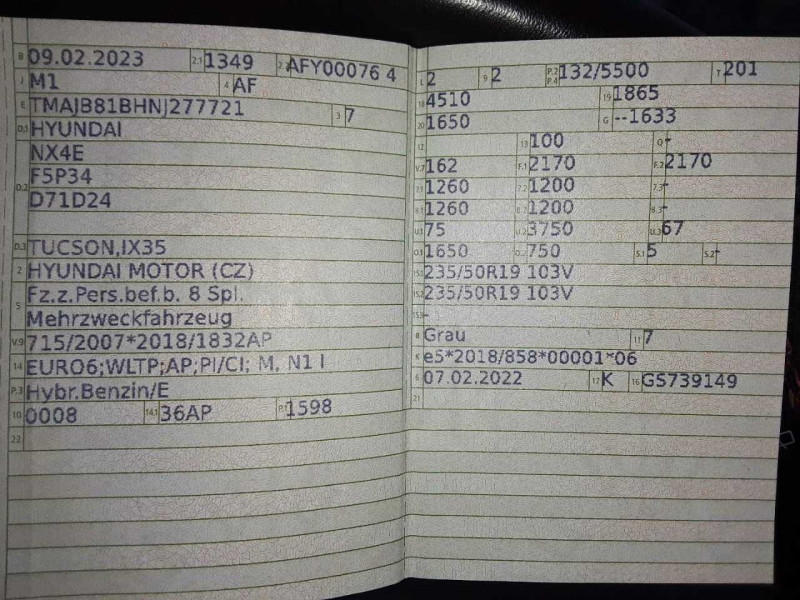 B 09.02.2023 2.1 1349 2.2 AFY00076 4
J M1 4 AF
E TMAJB81BHNJ277721 3 7
D.1 HYUNDAI
NX4E
D.2 F5P34
D71D24
D.3 TUCSON,IX35
2 HYUNDAI MOTOR (CZ)
5 Fz.z.Pers.bef.b. 8 Spl.
Mehrzweckfahrzeug
V.9 715/2007*2018/1832AP
14 EURO6;WLTP;AP;PI/CI; M, N1 I
P.3 Hybr.Benzin/E
10 0008 14.1 36AP P.1 1598
22
L 2 9 2 P.2 P.4 132/5500 T 201
18 4510 19 1865
20 1650 G --1633
12 13 100 Q -
V.7 162 F.1 2170 F.2 2170
7.1 1260 7.2 1200 7.3 -
8.1 1260 8.2 1200 8.3 -
U.1 75 U.2 3750 U.3 67
O.1 1650 O.2 750 S.1 5 S.2 -
15.1 235/50R19 103V
15.2 235/50R19 103V
15.3 -
R Grau 11 7
K e5*2018/858*00001*06
6 07.02.2022 17 K 16 GS739149
21